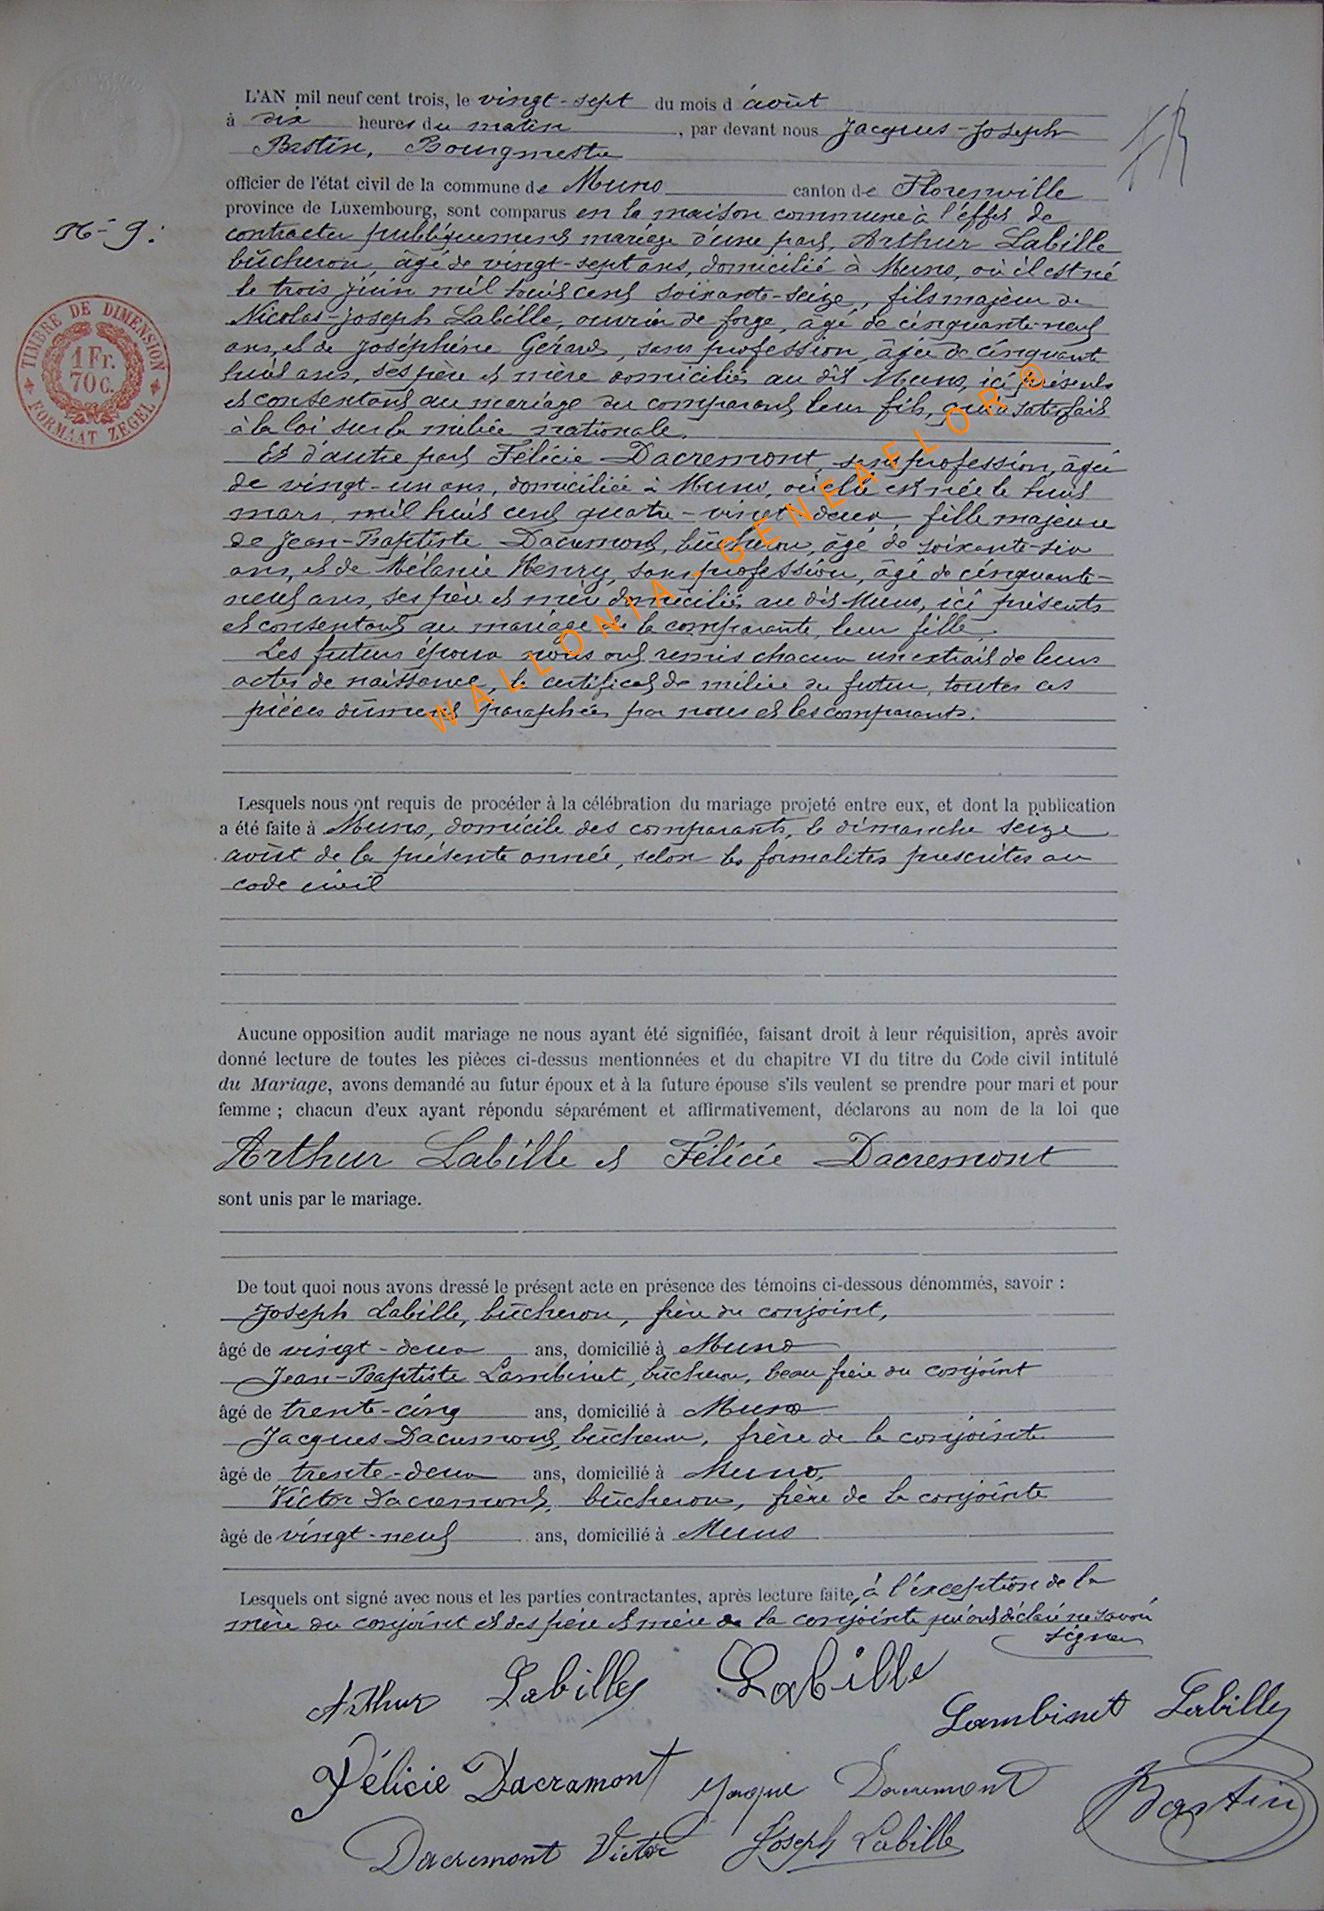 L'AN mil neuf cent trois, le vingt-sept du mois d'août
à dix heures du matin, par devant nous Jacques-Joseph
Bastin, Bourgmestre
officier de l'état civil de la commune de Muno canton de Florenville
N° 9.
province de Luxembourg, sont comparus en la maison commune à l'effet de
contracter publiquement mariage d'une part, Arthur Labille
bûcheron, âgé de vingt-sept ans, domicilié à Muno, où il est né
le trois juin mil huit cent soixante-seize, fils majeur de
Nicolas-Joseph Labille, ouvrier de forge, âgé de cinquante-neuf
ans, et de Joséphine Gérard, sans profession, âgée de cinquante
huit ans, ses père et mère domiciliés au dit Muno, ici présents
et consentant au mariage du comparant leur fils, qui a satisfait
à la loi sur la milice nationale.
Et d'autre part Félicie Dacremont, sans profession, âgée
de vingt-un ans, domiciliée à Muno, où elle est née le huit
mars mil huit cent quatre-vingt deux, fille majeure
de Jean-Baptiste Dacremont, bûcheron, âgé de soixante-six
ans, et de Mélanie Henry, sans profession, âgé de cinquante-
neuf ans, ses père et mère domiciliés au dit Muno, ici présents
et consentant au mariage de la comparante, leur fille.
Les futurs époux nous ont remis chacun un extrait de leurs
actes de naissance, le certificat de milice du futur, toutes ces
pièces dûment paraphées par nous et les comparants.
WALLONIA-GENEAFLOR ©
TIMBRE DE DIMENSION
1 Fr.
70 C.
FORMAAT ZEGEL
Lesquels nous ont requis de procéder à la célébration du mariage projeté entre eux, et dont la publication
a été faite à Muno, domicile des comparants, le dimanche seize
août de la présente année, selon les formalités prescrites au
code civil
Aucune opposition audit mariage ne nous ayant été signifiée, faisant droit à leur réquisition, après avoir
donné lecture de toutes les pièces ci-dessus mentionnées et du chapitre VI du titre du Code civil intitulé
du Mariage, avons demandé au futur époux et à la future épouse s'ils veulent se prendre pour mari et pour
femme ; chacun d'eux ayant répondu séparément et affirmativement, déclarons au nom de la loi que
Arthur Labille et Félicie Dacremont
sont unis par le mariage.
De tout quoi nous avons dressé le présent acte en présence des témoins ci-dessous dénommés, savoir :
Joseph Labille, bûcheron, frère du conjoint,
âgé de vingt-deux ans, domicilié à Muno
Jean-Baptiste Lambinet, bûcheron, beau frère du conjoint
âgé de trente-cinq ans, domicilié à Muno
Jacques Dacremont, bûcheron, frère de la conjointe
âgé de trente-deux ans, domicilié à Muno,
Victor Dacremont, bûcheron, frère de la conjointe
âgé de vingt-neuf ans, domicilié à Muno
Lesquels ont signé avec nous et les parties contractantes, après lecture faite, à l'exception de la
mère du conjoint et des père et mère de la conjointe qui ont déclaré ne savoir
signer
Arthur Labille Labille
Lambinet Labille
Félicie Dacramont Dacremont Bastin
Dacremont Victor Joseph Labille